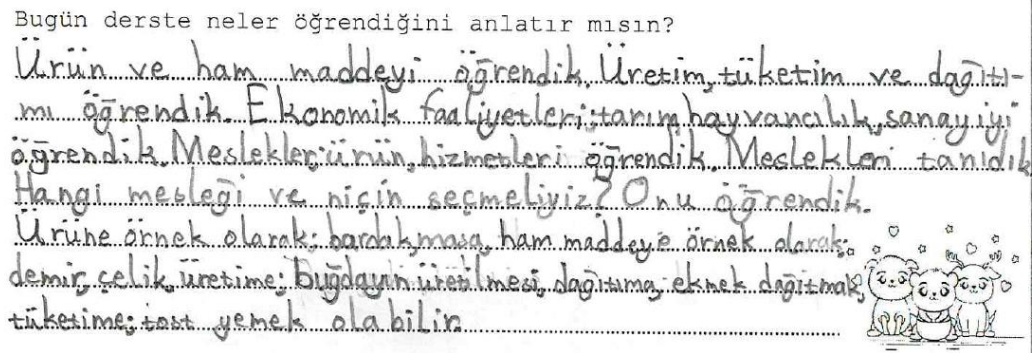 Bugün derste neler öğrendiğini anlatır mısın?
Ürün ve ham maddeyi öğrendik. Üretim, tüketim ve dağıtı-
mı öğrendik. Ekonomik faaliyetleri; tarım, hayvancılık, sanayiyi
öğrendik. Meslekler; ürün, hizmetleri öğrendik. Meslekleri tanıdık
Hangi mesleği ve niçin seçmeliyiz? Onu öğrendik.
Ürüne örnek olarak; bardak, masa, ham maddeye örnek olarak;
demir, çelik, üretime; buğdayın üretilmesi, dağıtıma; ekmek dağıtmak,
tüketime; tost yemek olabilir.